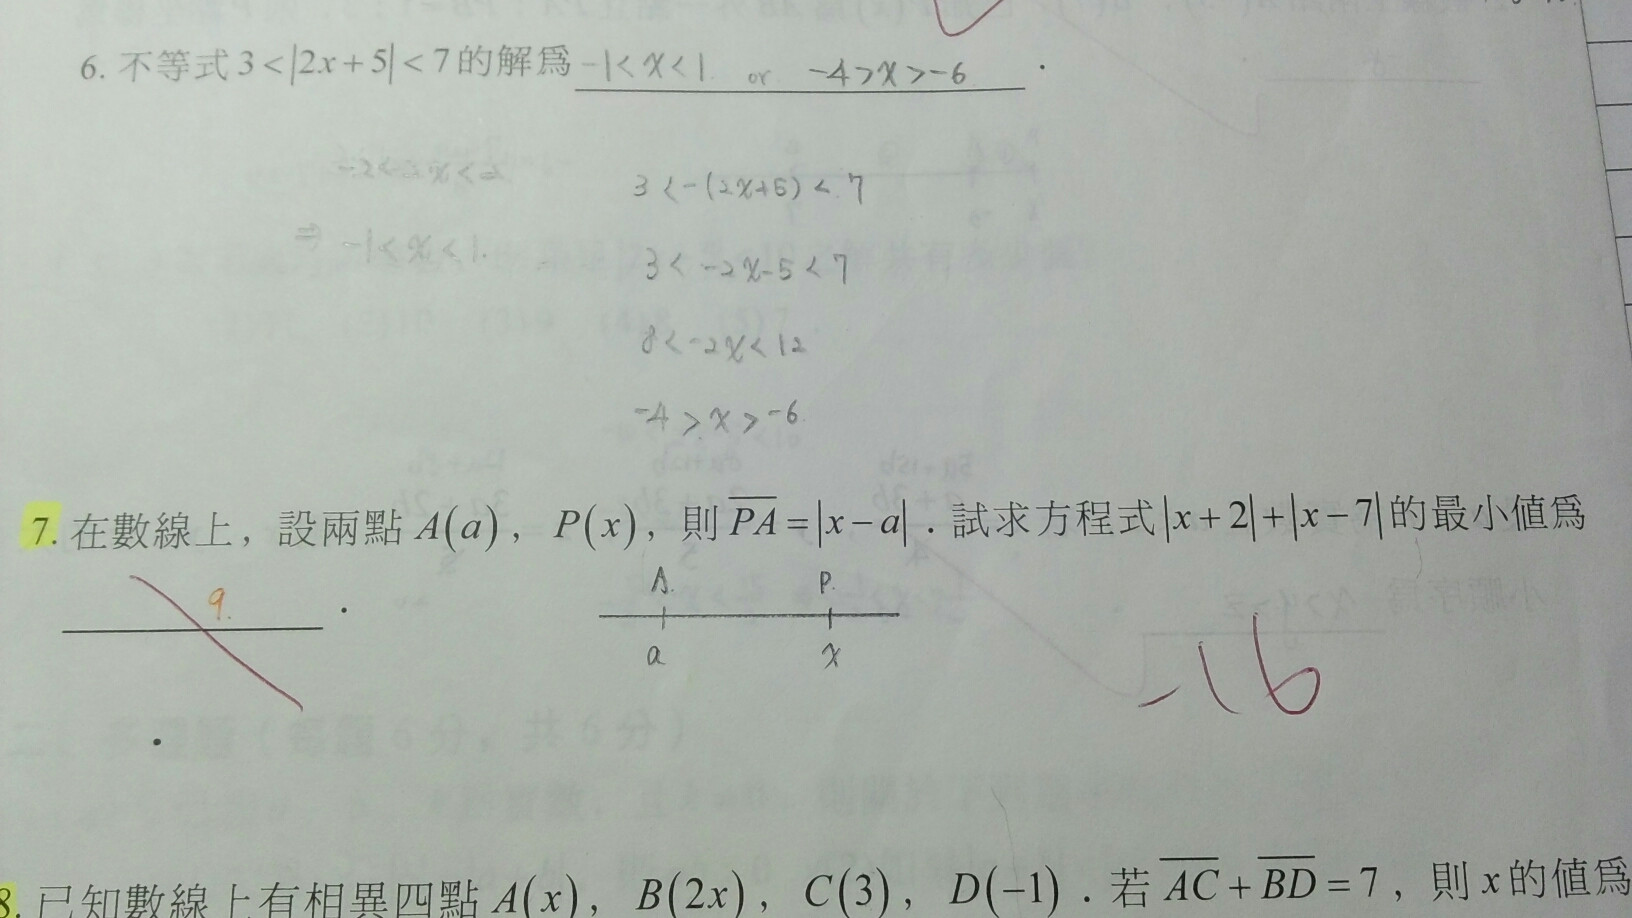 6. 不等式 3<|2x+5|<7 的解為 -1<x<1. or -4>x>-6 .
-2<2x<2
⇒ -1<x<1.
3<-(2x+5)<7
3<-2x-5<7
8<-2x<12
-4>x>-6
7. 在數線上，設兩點 A(a)，P(x)，則 \overline{PA}=|x-a|．試求方程式 |x+2|+|x-7| 的最小值為
9. .
A. P.
a x
-16
8. 已知數線上有相異四點 A(x)，B(2x)，C(3)，D(-1)．若 \overline{AC}+\overline{BD}=7，則 x 的值為